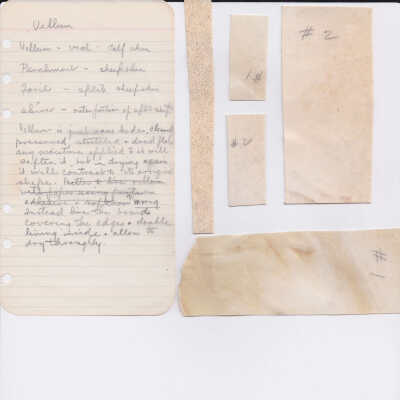 Vellum
Vellum - veal - calf skin
Parchment - sheepskin
- split sheepskin
- outer portion of split
Vellum is
processed, stretched + dried flat
any moisture applied to it will
soften it, but in drying again
it will contract to its original
shape.
instead line the boards
covering the edges + double
lining inside + allow to
dry thoroughly.
#1
#2
#2
#1